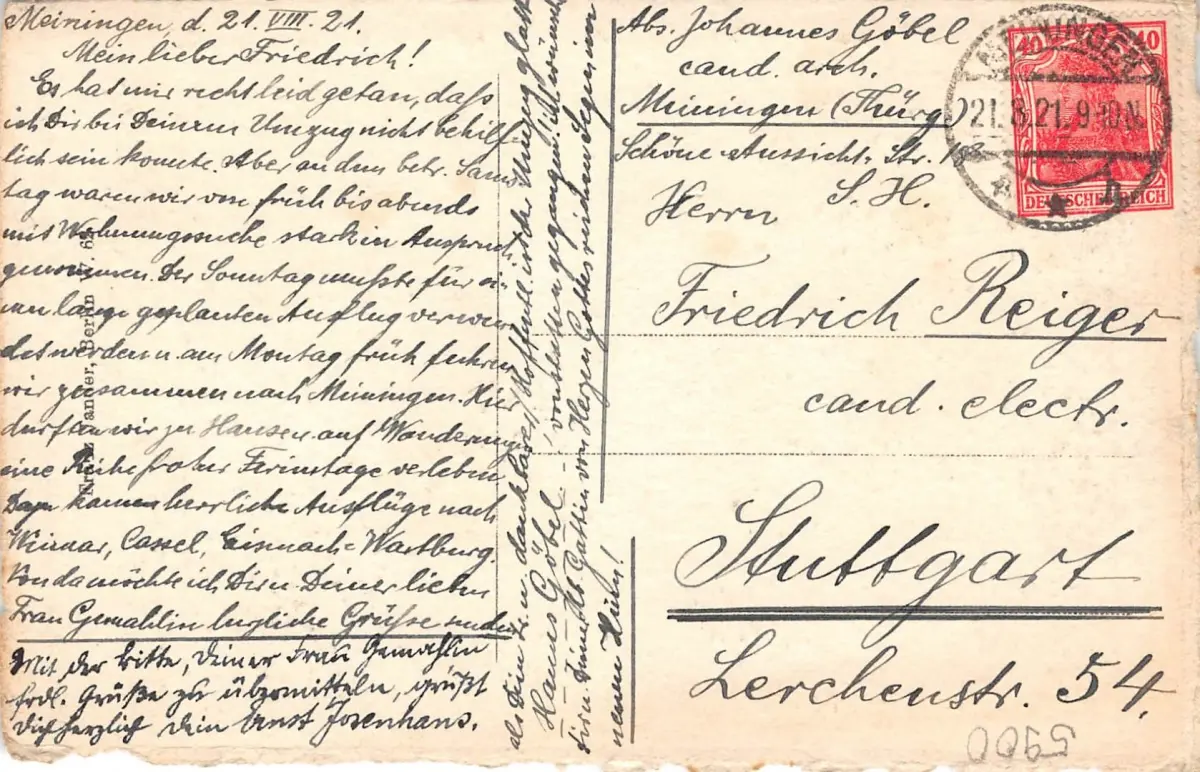 Meiningen, d. 21. VIII. 21.
Mein lieber Friedrich!
Es hat mir recht leid getan, daß
ich Dir bei Deinem Umzug nicht behilf-
lich sein konnte. Aber an dem betr. Sams-
tag waren wir von früh bis abends
mit Wohnungssuche stark in Anspruch
genommen. Der Sonntag mußte für ei-
nen lange geplanten Ausflug verwen-
det werden u. am Montag früh fuhren
wir zusammen nach Meiningen. Hier
durften wir zu Hause u. auf Wanderungen
eine Reihe froher Ferientage verleben.
Dazu kamen herrliche Ausflüge nach
Weimar, Cassel, Eisenach-Wartburg.
Von da möchte ich Dir u. Deiner lieben
Frau Gemahlin herzliche Grüße senden
als Dein tr. u. dankbarer
Hannes Göbel.
Hoffentl. ist der Umzug glatt
vonstatten gegangen. Ich wünsche
Dir u. Deiner Gattin von Herzen Gottes reichen Segen im
neuen Heim!
Mit der Bitte, Deiner Frau Gemahlin
frdl. Grüße zu übermitteln, grüßt
Dich herzlich Dein Ernst Josenhans.
Abs. Johannes Göbel
cand. arch.
Meiningen (Thürg.)
Schöne-Aussicht-Str.
S. H.
Herrn
Friedrich Reiger
cand. electr.
Stuttgart
Lerchenstr. 54.
MEININGEN
21.8.21. 9-10 N.
40 40
DEUTSCHES REICH
Berlin
5900